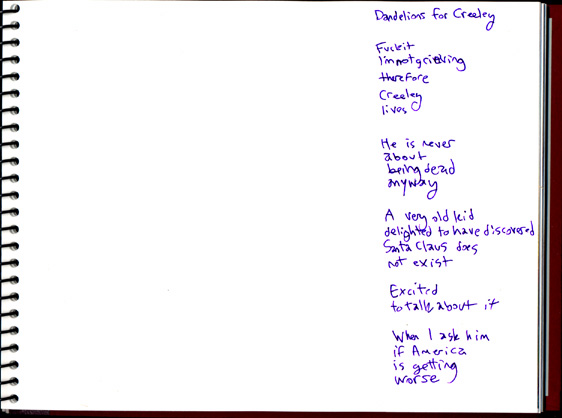 Dandelions for Creeley
Fuckit
I'm not grieving
therefore
Creeley
lives
He is never
about
being dead
anyway
A very old kid
delighted to have discovered
Santa Claus does
not exist
Excited
to talk about it
When I ask him
if America
is getting
worse